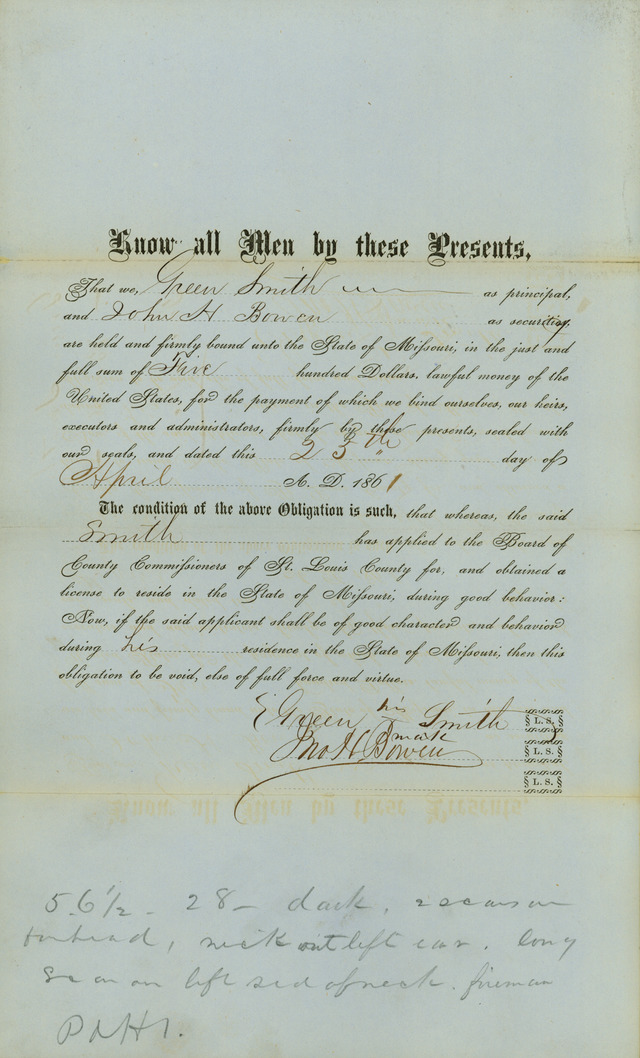 Know all Men by these Presents,
That we, Green Smith as principal,
and John H Bowen as security,
are held and firmly bound unto the State of Missouri, in the just and
full sum of Five hundred Dollars, lawful money of the
United States, for the payment of which we bind ourselves, our heirs,
executors and administrators, firmly by these presents, sealed with
our seals, and dated this 23th day of
April A. D. 1861
The condition of the above Obligation is such, that whereas, the said
Smith has applied to the Board of
County Commissioners of St. Louis County for, and obtained a
license to reside in the State of Missouri, during good behavior:
Now, if the said applicant shall be of good character and behavior
during his residence in the State of Missouri, then this
obligation to be void, else of full force and virtue.
Green his Smith L. S.
mark
Jno H Bowen L. S.
L. S.
5.6 1/2 - 28 - dark, 2 scars on
forhead, nick out left ear. long
scar on left sid of neck. fireman